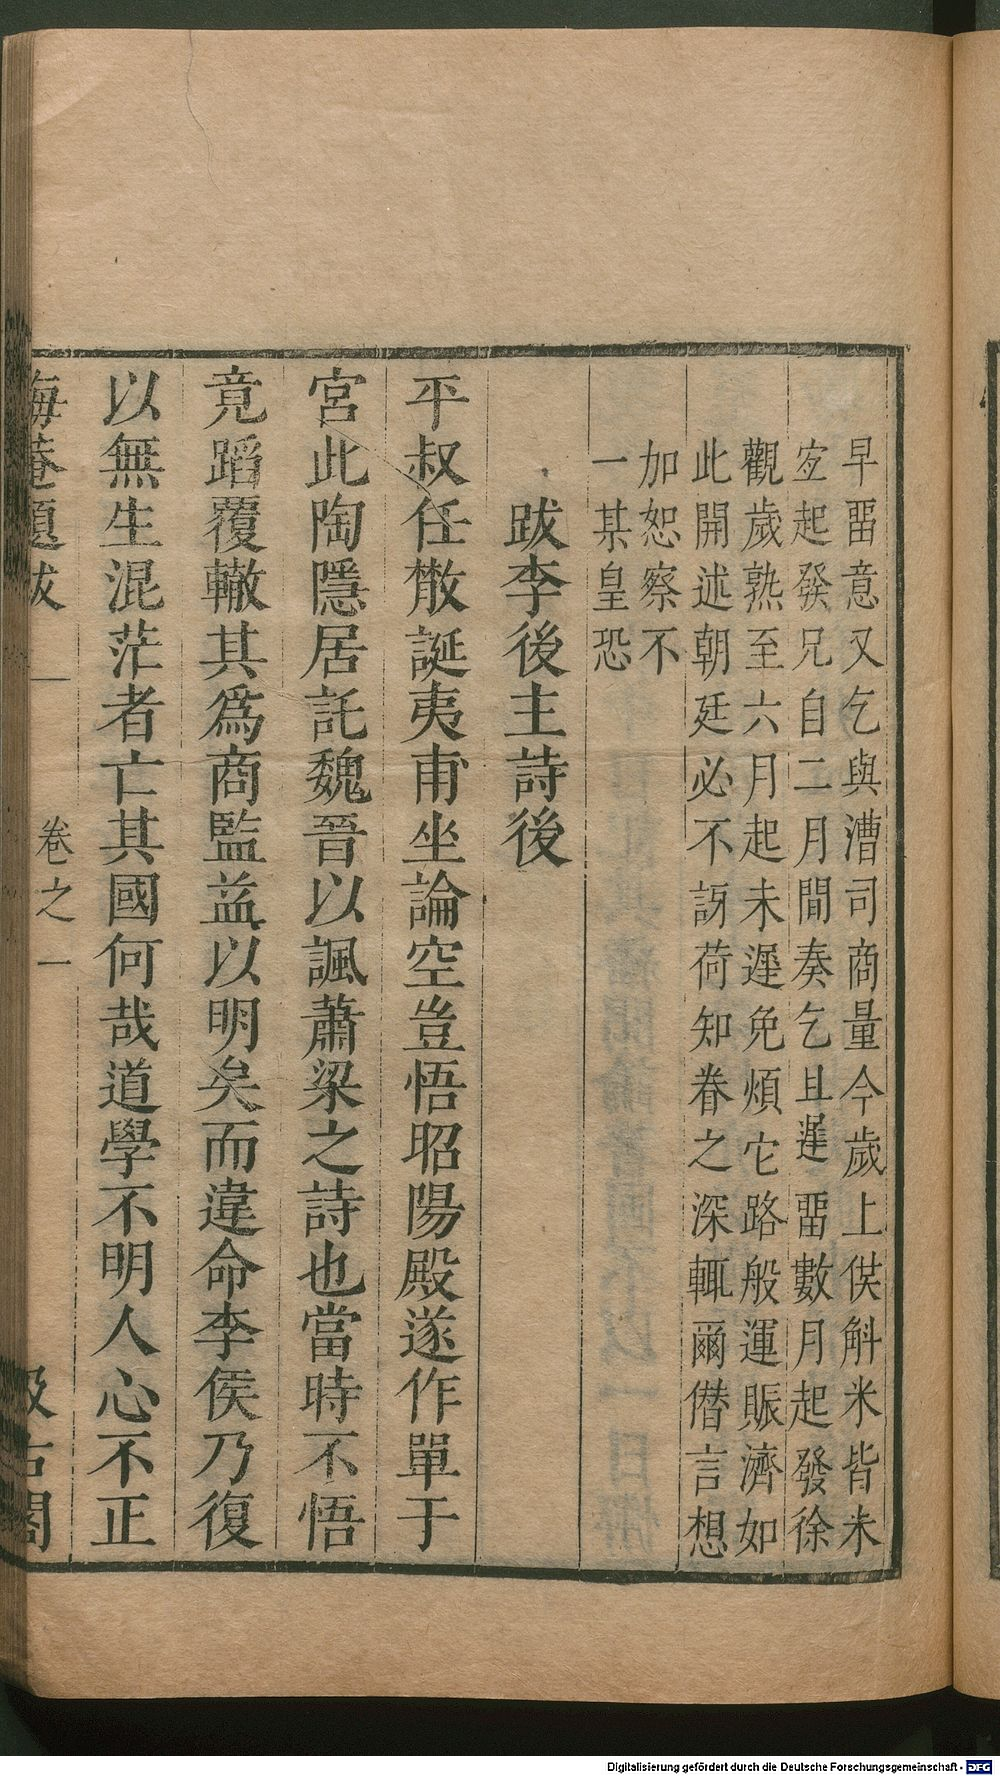 早畱意又乞與漕司商量今歲上供斛米皆未
宜起發兄自二月間奏乞且遲畱數月起發徐
觀歲熟至六月起未遲免煩它路般運賑濟如
此開述朝廷必不訝荷知眷之深輒爾僭言想
加恕察不
一某皇恐
跋李後主詩後
平叔任散誕夷甫坐論空豈悟昭陽殿遂作單于
宮此陶隱居託魏晉以諷蕭梁之詩也當時不悟
竟蹈覆轍其爲商監益以明矣而違命李侯乃復
以無生混茫者亡其國何哉道學不明人心不正
晦菴題跋 卷之一 汲古閣
Digitalisierung gefördert durch die Deutsche Forschungsgemeinschaft - DFG